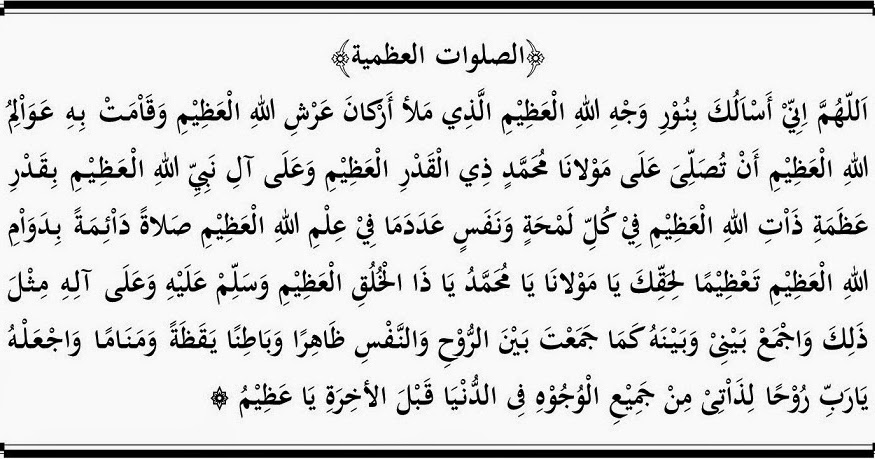 ﴿الصلوات العظمية﴾
اَللّٰهُمَّ اِنِّيْ أَسْاَلُكَ بِنُوْرِ وَجْهِ اللهِ الْعَظِيْمِ الَّذِي مَلأ أَرْكَانَ عَرْشِ اللهِ الْعَظِيْمِ وَقَاْمَتْ بِهِ عَوَاْلِمُ
اللهِ الْعَظِيْمِ أَنْ تُصَلِّىَ عَلَى مَوْلانَا مُحَمَّدٍ ذِي الْقَدْرِ الْعَظِيْمِ وَعَلَى آلِ نَبِيِّ اللهِ الْعَظِيْمِ بِقَدْرِ
عَظَمَةِ ذَاْتِ اللهِ الْعَظِيْمِ فِيْ كُلِّ لَمْحَةٍ وَنَفَسٍ عَدَدَمَا فِيْ عِلْمِ اللهِ الْعَظِيْمِ صَلاةً دَاْئِمَةً بِدَوَاْمِ
اللهِ الْعَظِيْمِ تَعْظِيْمًا لِحِقِّكَ يَا مَوْلانَا يَا مُحَمَّدُ يَا ذَا الْخُلُقِ الْعَظِيْمِ وَسَلِّمْ عَلَيْهِ وَعَلَى آلِهِ مِثْلَ
ذَلِكَ وَاجْمَعْ بَيْنِىْ وَبَيْنَهُ كَمَا جَمَعْتَ بَيْنَ الرُّوْحِ وَالنَّفْسِ ظَاهِرًا وَبَاطِنًا يَقَظَةً وَمَنَامًا وَاجْعَلْهُ
يَارَبِّ رُوْحًا لِذَاْتِىْ مِنْ جَمِيْعِ الْوُجُوْهِ فِى الدُّنْيَا قَبْلَ الأخِرَةِ يَا عَظِيْمُ ۞